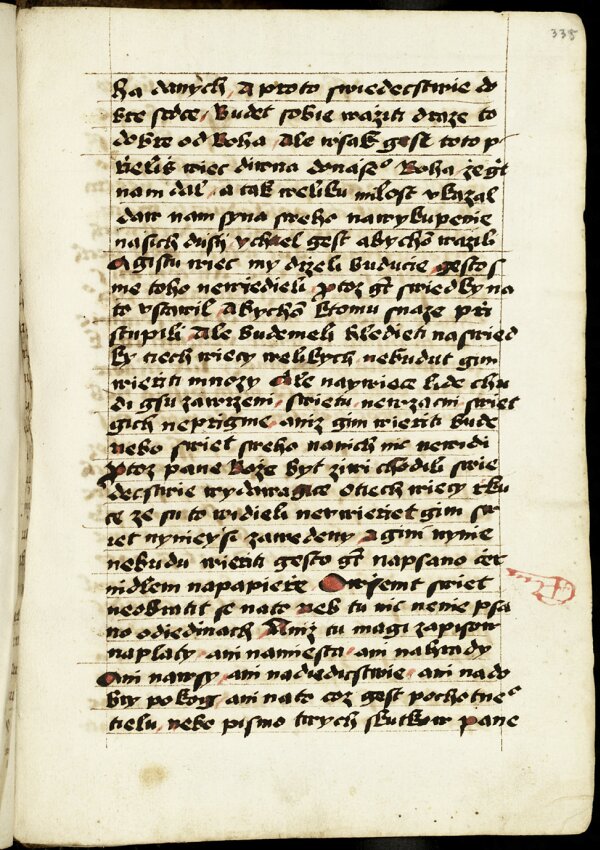 335
ha danych, A proto swiedecstwie do
bre srdce, budet sobie waziti draze to
dobre od boha, Ale wsak gest toto p
rielis wiec diwna donaseº Boha, ze gt
nam dal, a tak weliku milost vkazal
daw nam syna sweho nawykupenie
nasich dusij ychtel gest abychõ wazili
A gistu wiec my drzeli buducie, gesto s
me toho newiedieli, Protoz gt swiedky na
to vstawil, Abychõ ktomu snaze pr̃i
stupili, Ale budemeli hledieti naswied
ky tiech wiecy welikych nebudut gim
wieriti mnozy Ale naywiece lide chu
di gsu zawrzeni, swietu, newzacni swiet
gich neprigme, aniz gim wieriti bude
nebo swiet sweho nanich nic newidi
Protoz pane Boze byt ziwi chodili swie
decstwie wydawagice otiech wiecy rku
ce ze su to widieli newvieriet gim sw
iet nynieysi zawedeny A gim nynie
nebudu wieriti gesto gt napsano cer
nidlem napapieře Owsemt swiet
neobratit se nato neb tu nic nenie psa
no odiedinach Aniz tu magi zapisow
naplaty, ani namiesta, ani nahrady
Ani nawsy, ani nadiedicstwie, ani nado
bry pokog, ani nato coz gest pochotneº
tielu, nebo pismo twych skutkow pane